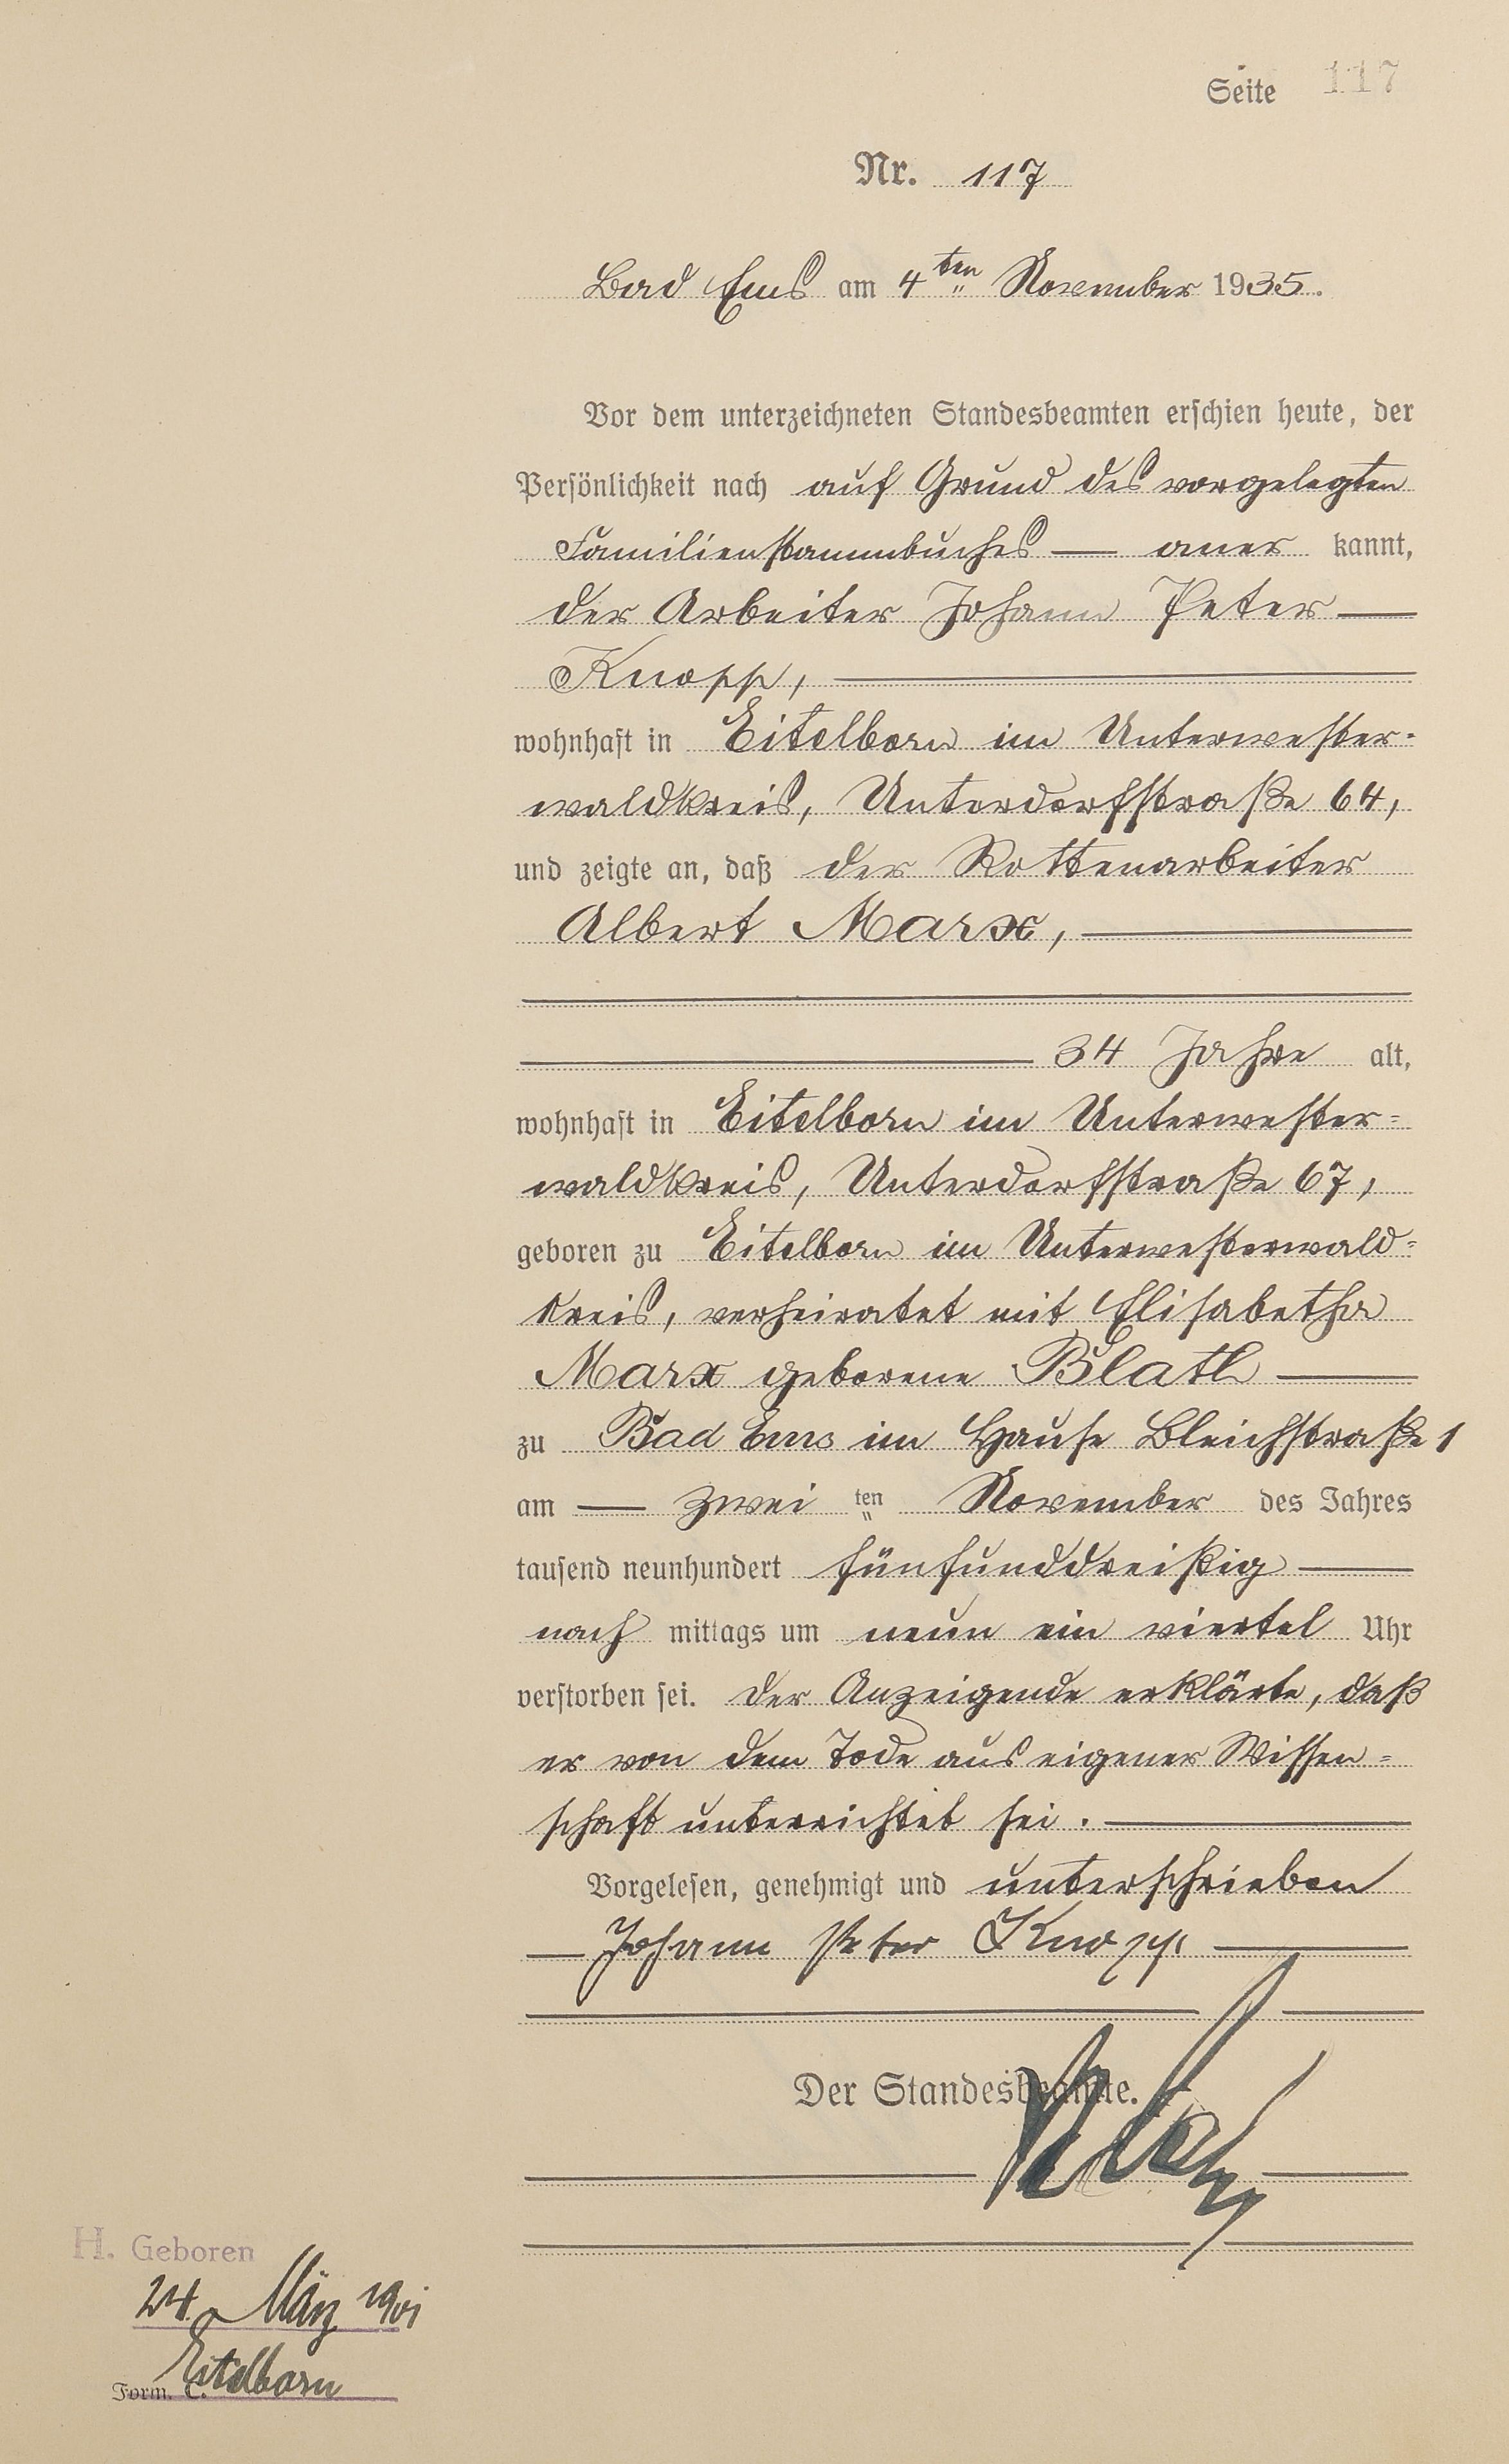 Seite 117
Nr. 117
Bad Ems am 4ten November 1935.
Vor dem unterzeichneten Standesbeamten erschien heute, der
Persönlichkeit nach auf Grund des vorgelegten
Familienstammbuches — aner kannt,
der Arbeiter Johann Peter —
Knopp, —
wohnhaft in Eitelborn im Unterwester-
waldkreis, Unterdorfstraße 64,
und zeigte an, daß der Rottenarbeiter
Albert Marx, —
— 34 Jahre alt,
wohnhaft in Eitelborn im Unterwester=
waldkreis, Unterdorfstraße 67,
geboren zu Eitelborn im Unterwesterwald=
kreis, verheiratet mit Elisabetha
Marx geborene Blath —
zu Bad Ems im Hause Bleichstraße 1
am — zwei ten November des Jahres
tausend neunhundert fünfunddreißig —
nach mittags um neun ein viertel Uhr
verstorben sei. Der Anzeigende erklärte, daß
er von dem Tode aus eigener Wissen=
schaft unterrichtet sei. —
Vorgelesen, genehmigt und unterschrieben
— Johann Peter Knopp —
Der Standesbeamte.
H. Geboren
24. März 1901
Eitelborn
Form. C.